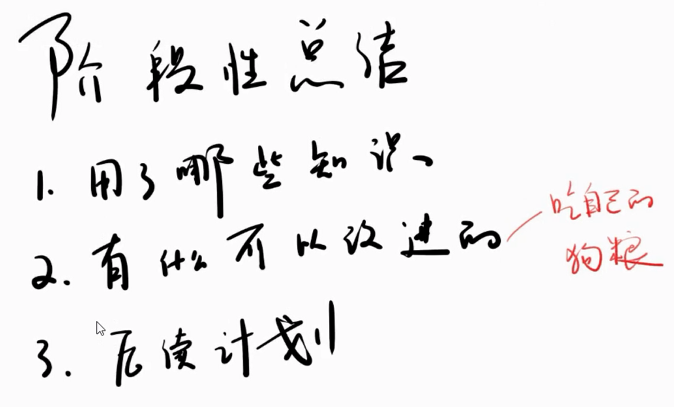 阶段性总结
1. 用了哪些知识、
2. 有什么可以改进的
吃自己的
狗粮
3. 后续计划